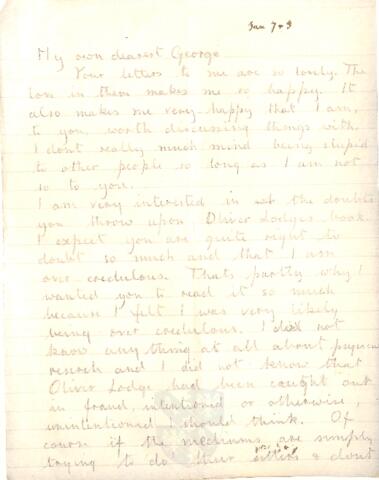 Jan 7 & 8
My own dearest George
Your letters to me are so lovely. The
love in them makes me so happy. It
also makes me very happy that I am,
to you, worth discussing things with.
I dont really much mind being stupid
to other people so long as I am not
so to you.
I am very interested in the doubts
you throw upon Oliver Lodges book.
I expect you are quite right to
doubt so much and that I am
over credulous. Thats partly why I
wanted you to read it so much
because I felt I was very likely
being over credulous. I did not
know any thing at all about
reserch and I did not know that
Oliver Lodge had been caught out
in fraud, intentioned or otherwise,
unintentioned I should think. Of
course if the mediums are simply
trying to do their sitters & dont